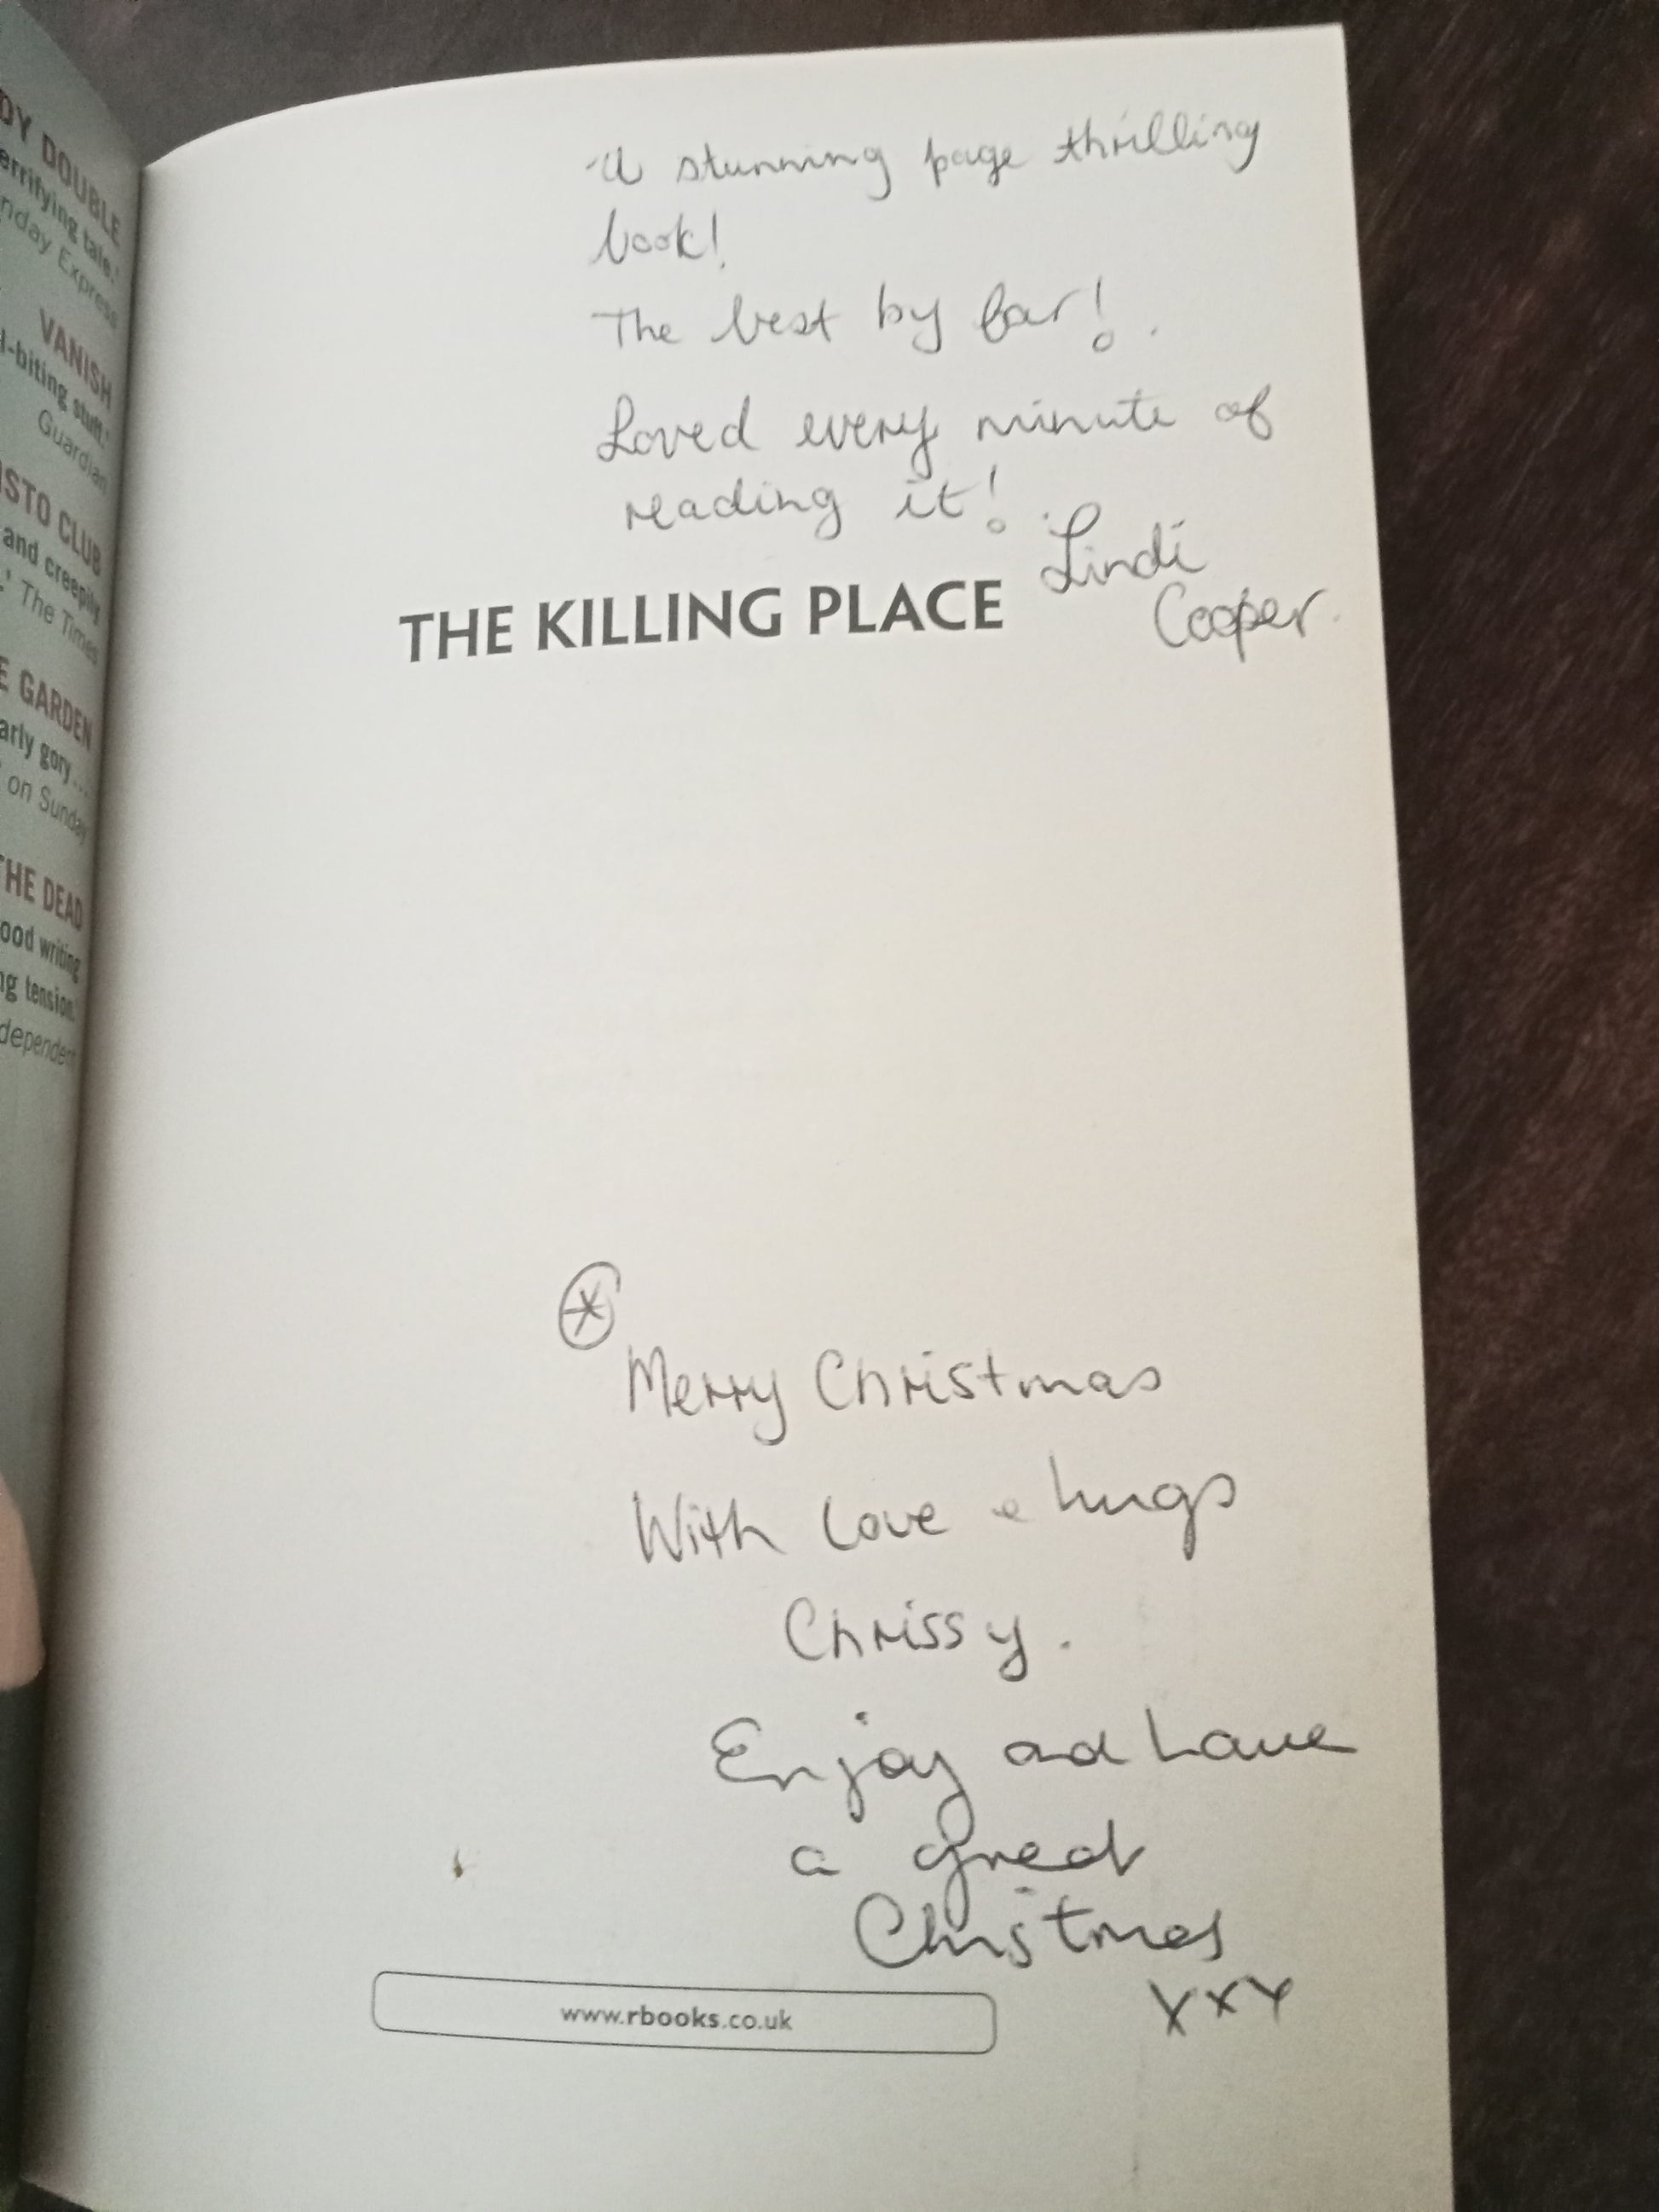 DY DOUBLE
errifying tale.'
nday Express
VANISH
l-biting stuff.'
Guardian
ISTO CLUB
and creepily
.' The Times
E GARDEN
arly gory...
' on Sunday
THE DEAD
ood writing
ng tension.'
dependent
A stunning page thrilling
book!
The best by far!
Loved every minute of
reading it!
Lindi
Cooper.
THE KILLING PLACE
Merry Christmas
With love & hugs
Chrissy.
Enjoy and have
a great
Christmas
xxx
www.rbooks.co.uk